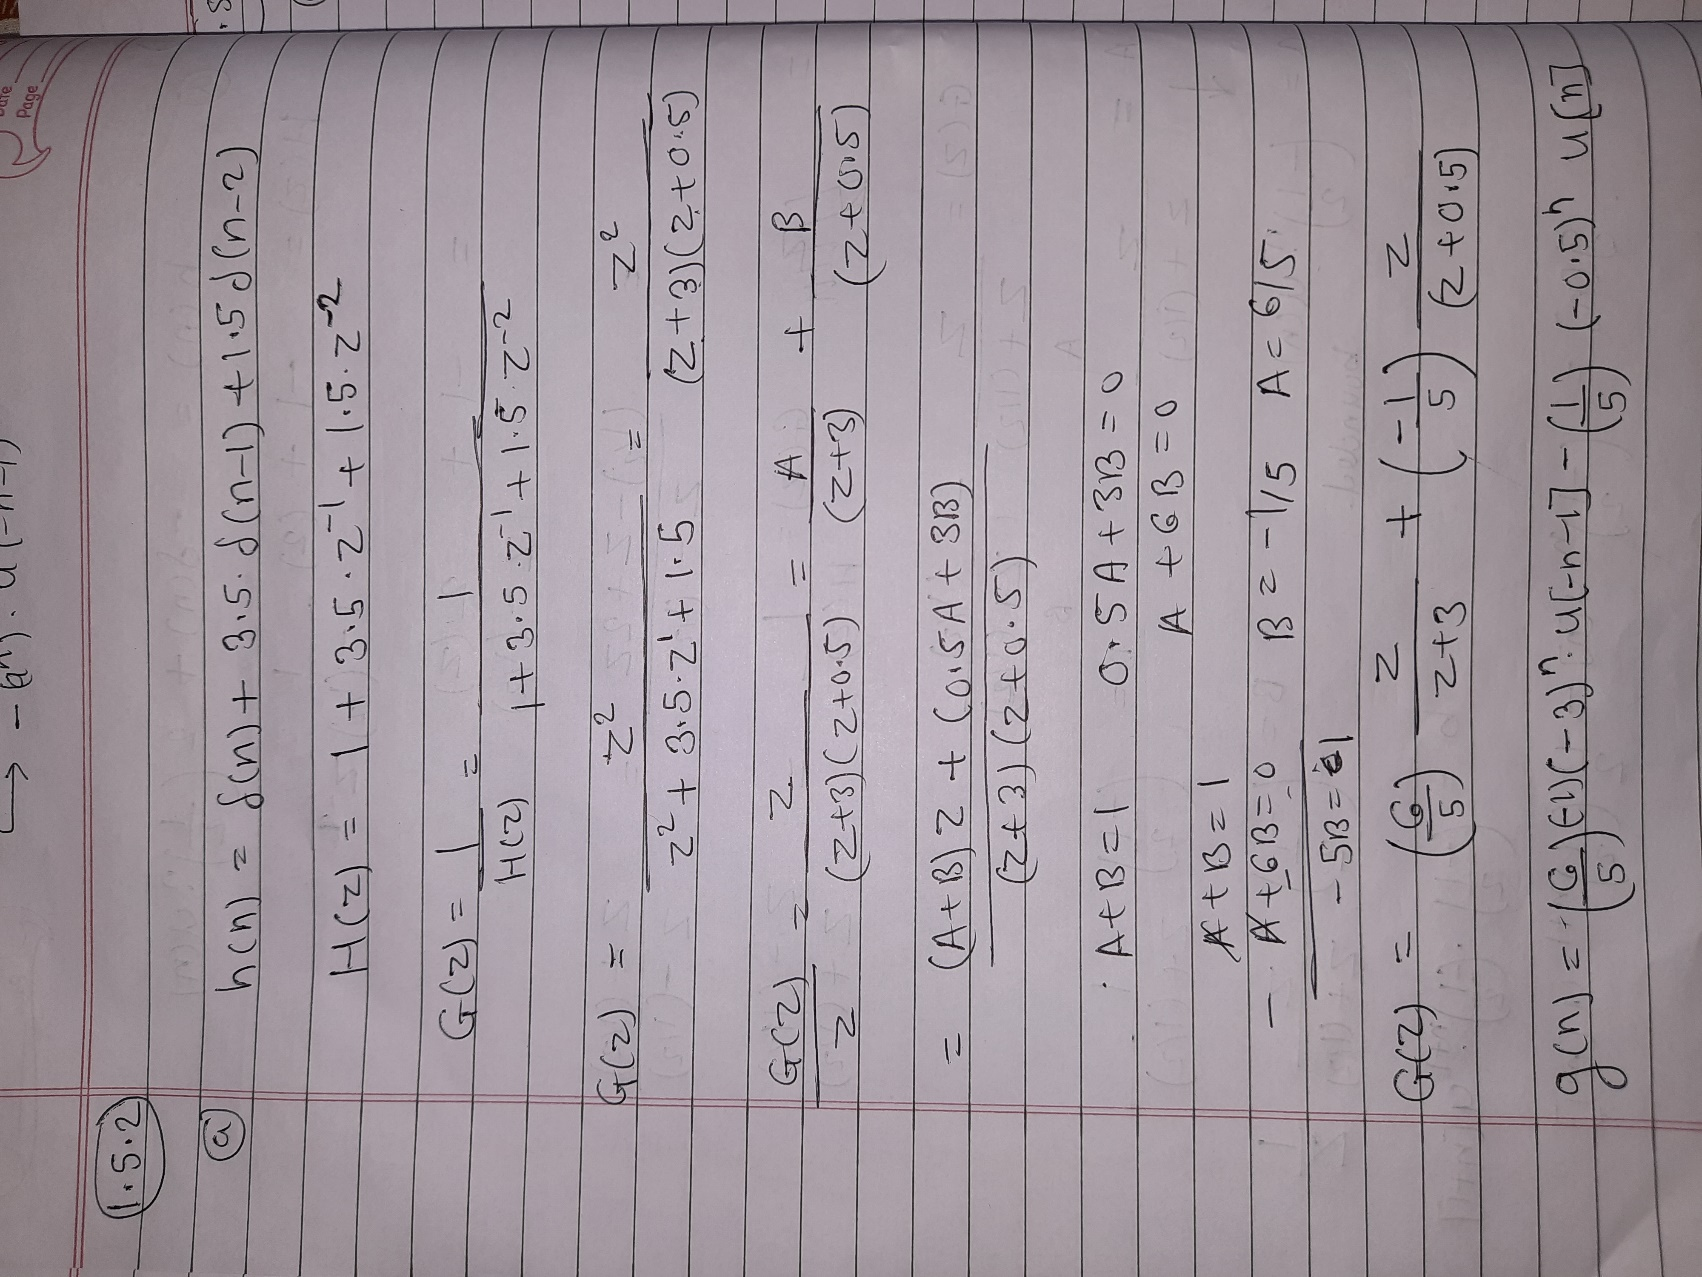 Date
Page
1.5.2
(a) h(n) = δ(n) + 3.5. δ(n-1) + 1.5 δ(n-2)
H(z) = 1 + 3.5.z⁻¹ + 1.5.z⁻²
G(z) = 1/H(z) = 1/(1+3.5.z⁻¹+1.5.z⁻²)
G(z) = z²/(z²+3.5.z¹+1.5) = z²/((z+3)(z+0.5))
G(z)/z = z/((z+3)(z+0.5)) = A/(z+3) + B/(z+0.5)
= ((A+B)z + (0.5A+3B))/((z+3)(z+0.5))
A+B=1 0.5A+3B=0
A+6B=0
A+B=1
- A+6B=0 B=-1/5 A=6/5
-5B=1
G(z) = (6/5) z/(z+3) + (-1/5) z/(z+0.5)
g(n) = (6/5)(-1)(-3)ⁿ.u[-n-1] - (1/5)(-0.5)ⁿ u[n]